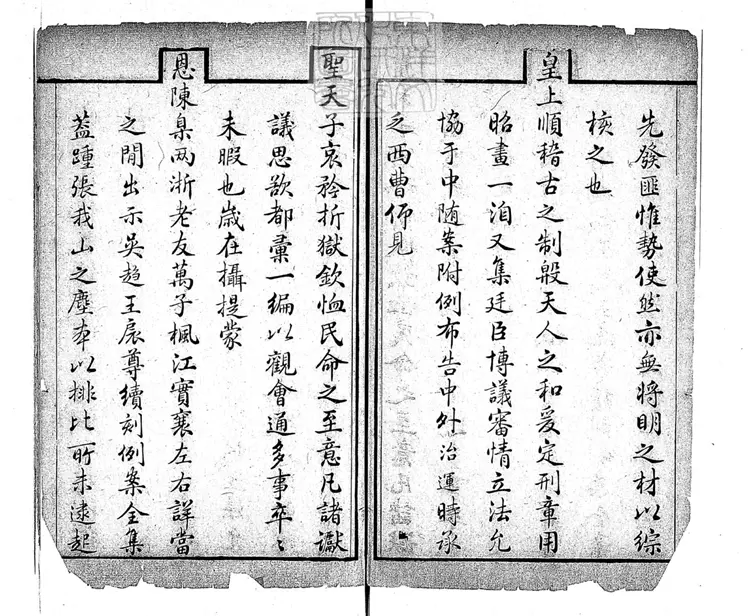 先發匪惟勢使然亦無將明之材以綜
核之也
皇上順稽古之制般天人之和爰定刑章用
昭畫一洎又集廷臣博議審情立法允
協于中隨案附例布告中外治運時承
之西曹仰見
聖天子哀矜折獄欽恤民命之至意凡諸讞
議思欲都彙一編以觀會通多事卒卒
未暇也歲在攝提蒙
恩陳臬两浙老友萬子楓江實襄左右詳當
之間出示吳趙王扆尊續刻例案全集
蓋踵張我山之塵本以排比所未逮起